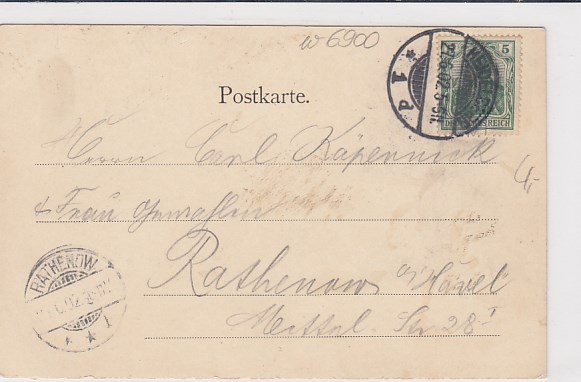 w 6900
5
DEUTSCHES REICH
P 1
Postkarte.
Herrn Carl Käpernick
& Frau Gemahlin
4,-
Rathenow a/Havel
Mittel. Str 28 I
RATHENOW
02
1